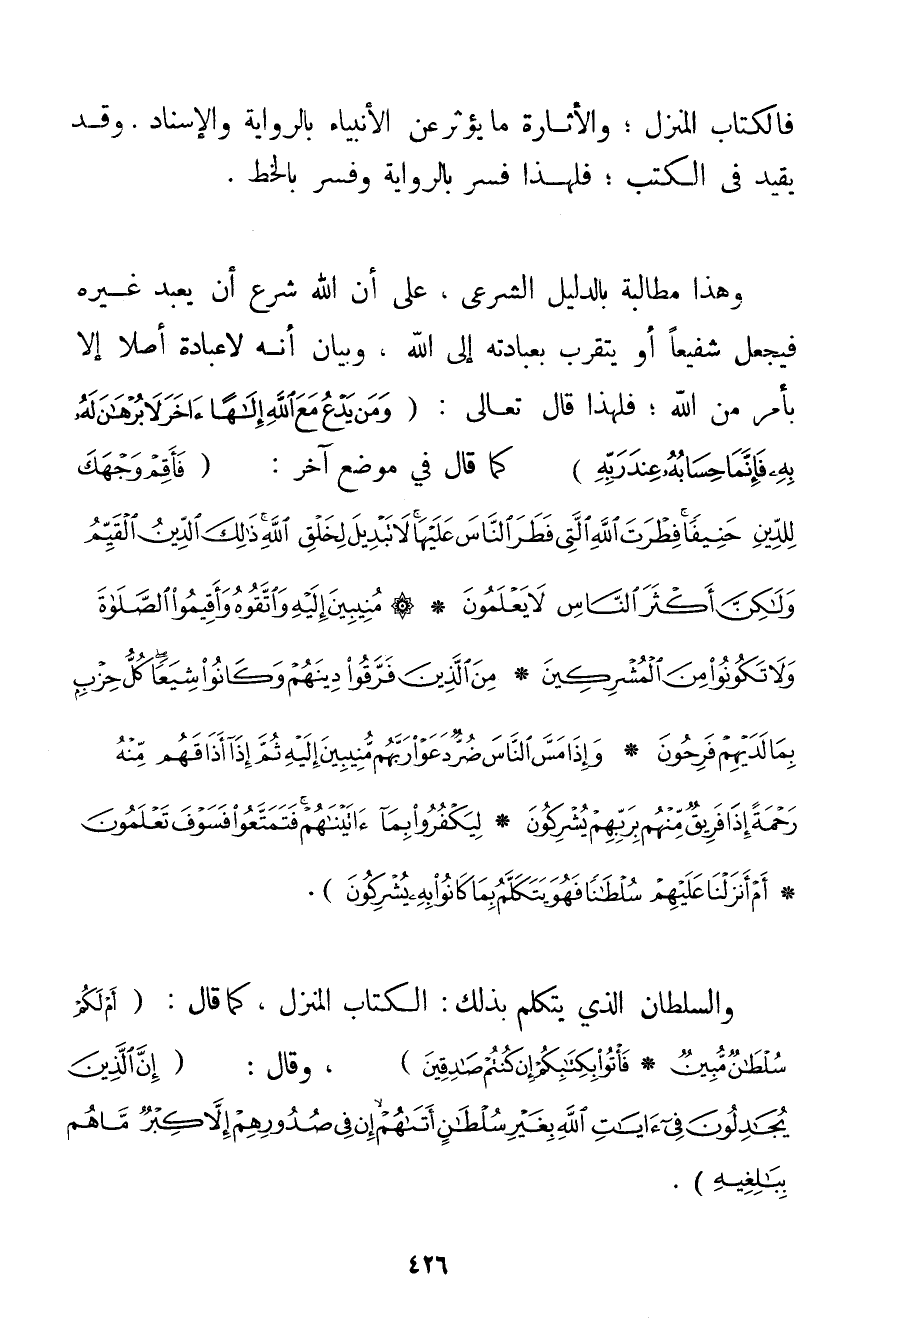 فالكتاب المنزل ؛ والأثـارة ما يؤثر عن الأنبياء بالرواية والإسناد . وقـد
يقيد فى الـكتب ؛ فلهـذا فسر بالرواية وفسر بالخط .
وهذا مطالبة بالدليل الشرعى ، على أن الله شرع أن يعبد غـيره
فيجعل شفيعاً أو يتقرب بعبادته إلى الله ، وبيان أنـه لاعبادة أصلا إلا
بأمر من الله ؛ فلهذا قال تعـالى : ( وَمَن يَدْعُ مَعَ ٱللَّهِ إِلَـٰهًا ءَاخَرَ لَا بُرْهَـٰنَ لَهُۥ
بِهِۦ فَإِنَّمَا حِسَابُهُۥ عِندَ رَبِّهِۦ ) كما قال في موضع آخر : ( فَأَقِمْ وَجْهَكَ
لِلدِّينِ حَنِيفًا ۚ فِطْرَتَ ٱللَّهِ ٱلَّتِى فَطَرَ ٱلنَّاسَ عَلَيْهَا ۚ لَا تَبْدِيلَ لِخَلْقِ ٱللَّهِ ۚ ذَٰلِكَ ٱلدِّينُ ٱلْقَيِّمُ
وَلَـٰكِنَّ أَكْثَرَ ٱلنَّاسِ لَا يَعْلَمُونَ * ۞ مُنِيبِينَ إِلَيْهِ وَٱتَّقُوهُ وَأَقِيمُوا۟ ٱلصَّلَوٰةَ
وَلَا تَكُونُوا۟ مِنَ ٱلْمُشْرِكِينَ * مِنَ ٱلَّذِينَ فَرَّقُوا۟ دِينَهُمْ وَكَانُوا۟ شِيَعًا ۖ كُلُّ حِزْبٍۭ
بِمَا لَدَيْهِمْ فَرِحُونَ * وَإِذَا مَسَّ ٱلنَّاسَ ضُرٌّ دَعَوْا۟ رَبَّهُم مُّنِيبِينَ إِلَيْهِ ثُمَّ إِذَآ أَذَاقَهُم مِّنْهُ
رَحْمَةً إِذَا فَرِيقٌ مِّنْهُم بِرَبِّهِمْ يُشْرِكُونَ * لِيَكْفُرُوا۟ بِمَآ ءَاتَيْنَـٰهُمْ ۚ فَتَمَتَّعُوا۟ فَسَوْفَ تَعْلَمُونَ
* أَمْ أَنزَلْنَا عَلَيْهِمْ سُلْطَـٰنًا فَهُوَ يَتَكَلَّمُ بِمَا كَانُوا۟ بِهِۦ يُشْرِكُونَ ) .
والسلطان الذي يتكلم بذلك : الـكتاب المنزل ، كما قال : ( أَمْ لَكُمْ
سُلْطَـٰنٌ مُّبِينٌ * فَأْتُوا۟ بِكِتَـٰبِكُمْ إِن كُنتُمْ صَـٰدِقِينَ ) ، وقال : ( إِنَّ ٱلَّذِينَ
يُجَـٰدِلُونَ فِىٓ ءَايَـٰتِ ٱللَّهِ بِغَيْرِ سُلْطَـٰنٍ أَتَىٰهُمْ ۙ إِن فِى صُدُورِهِمْ إِلَّا كِبْرٌ مَّا هُم
بِبَـٰلِغِيهِ ) .
٤٢٦